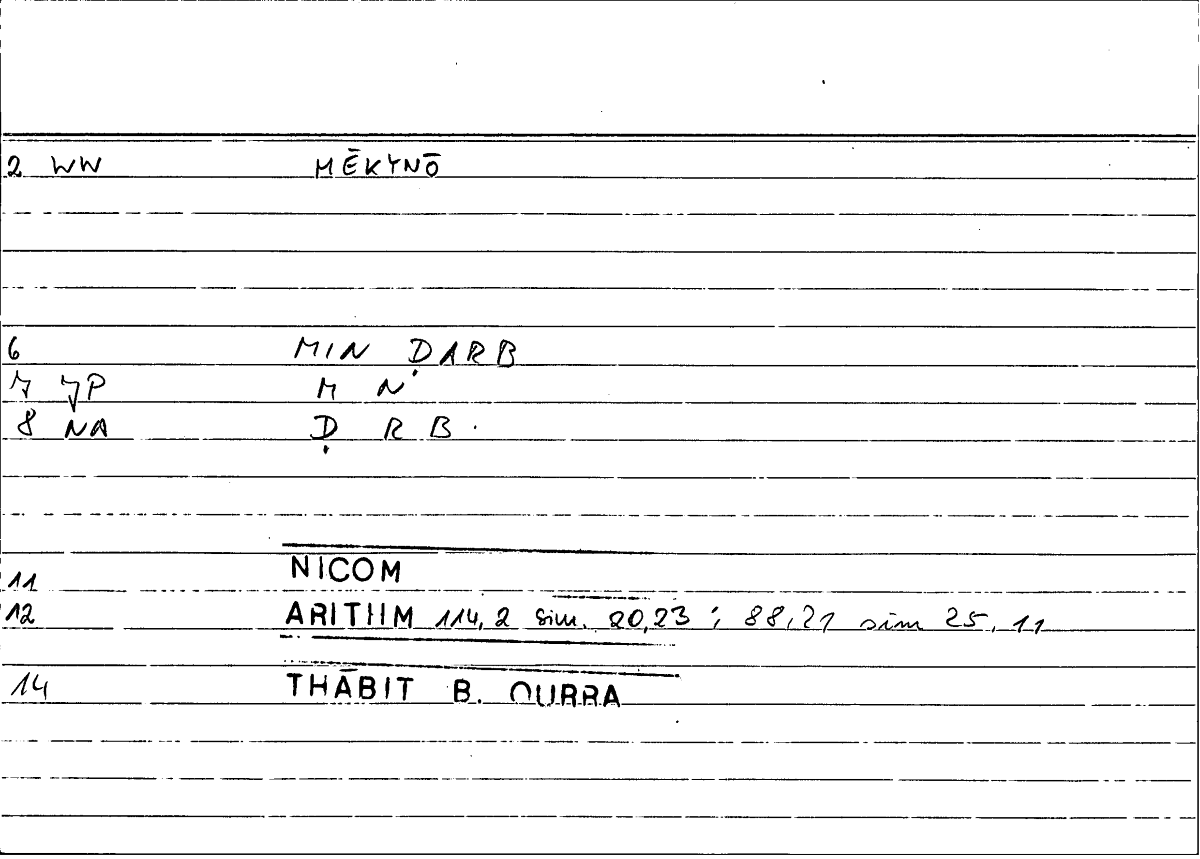 2 WW MĒKYNŌ
6 MIN ḌARB
7 JP M N
8 NA Ḍ R B
11 NICOM
12 ARITHM 114,2 sim. 20,23 ; 88,21 sim 25,11
14 THĀBIT B. QURRA